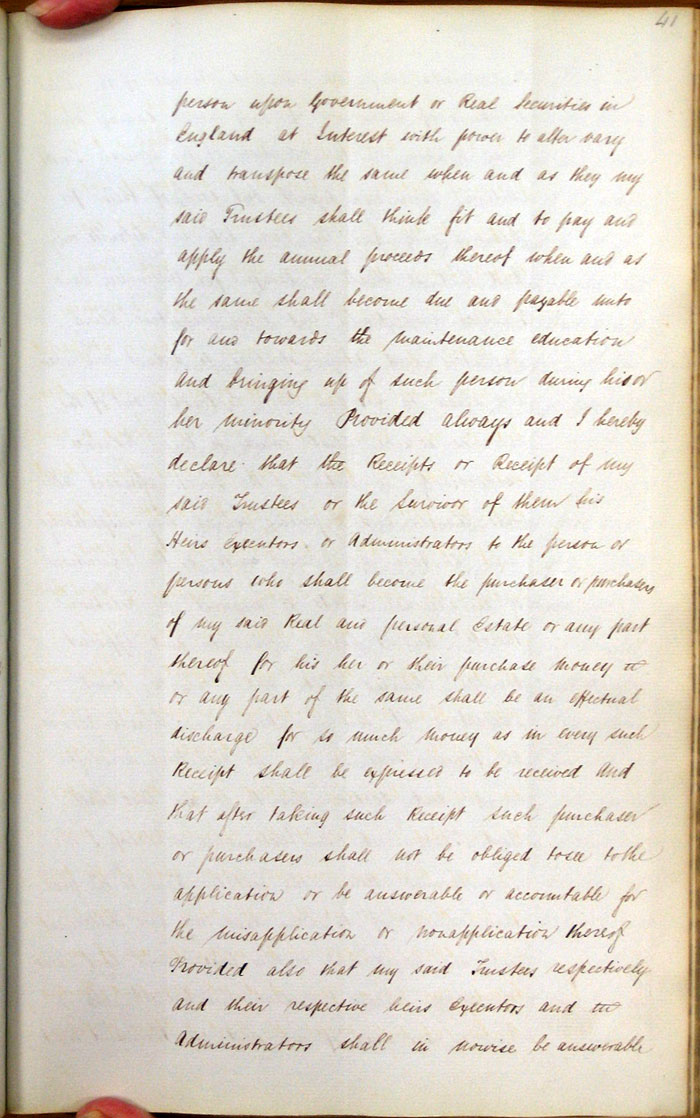 41
person upon Government or Real Securities in
England at Interest with power to alter vary
and transpose the same when and as they my
said Trustees shall think fit and to pay and
apply the annual proceeds thereof when and as
the same shall become due and payable unto
for and towards the maintenance education
and bringing up of such person during his or
her minority Provided always and I hereby
declare that the Receipts or Receipt of my
said Trustees or the Survivor of them his
Heirs Executors or Administrators to the person or
persons who shall become the purchaser or purchasers
of my said Real and personal Estate or any part
thereof for his her or their purchase money
or any part of the same shall be an effectual
discharge for so much money as in every such
Receipt shall be expressed to be received And
that after taking such Receipt such purchaser
or purchasers shall not be obliged to see to the
application or be answerable or accountable for
the misapplication or nonapplication thereof
Provided also that my said Trustees respectively
and their respective heirs Executors and
Administrators shall in nowise be answerable